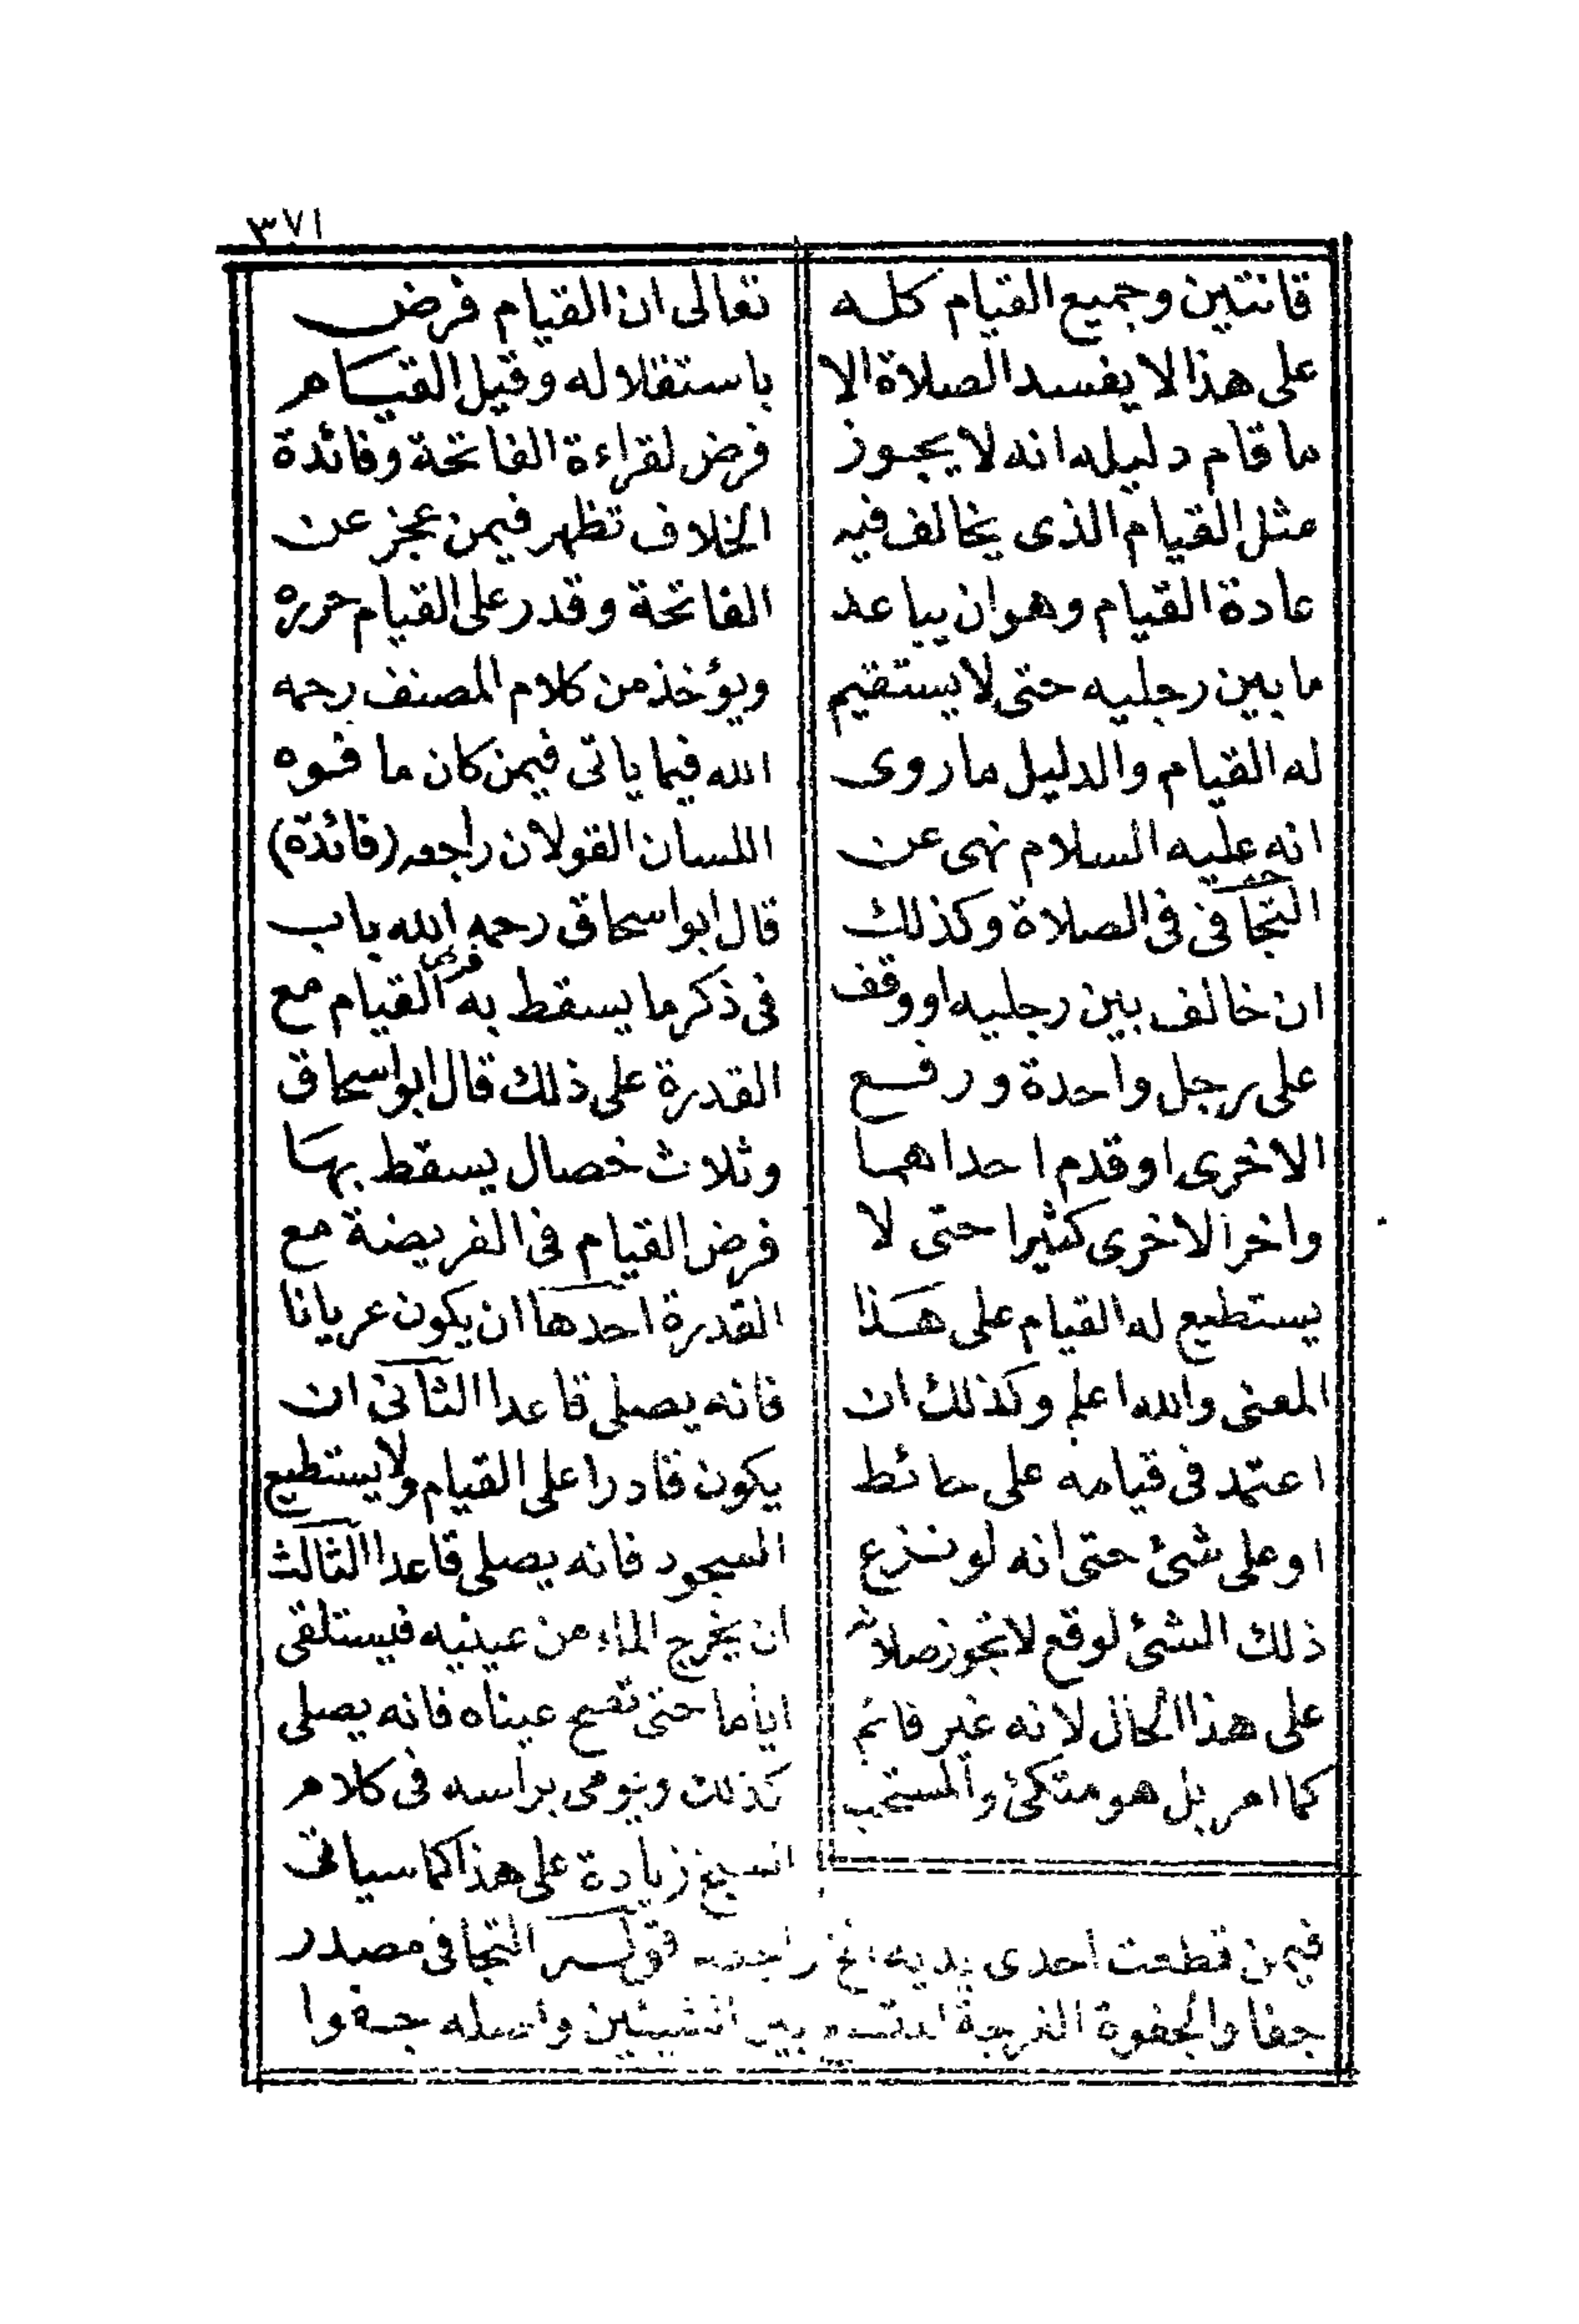 ٣٧١
قانتين وجميع القيام كله
على هذا لا يفسد الصلاة الا
ما قام دليله انه لا يجوز
مثل القيام الذى يخالف فيه
عادة القيام وهو ان يباعد
ما بين رجليه حتى لا يستقيم
له القيام والدليل ما روى
انه عليه السلام نهى عن
التجافى فى الصلاة وكذلك
ان خالف بين رجليه او وقف
على رجل واحدة ورفع
الاخرى او قدم احداهما
واخر الاخرى كثيرا حتى لا
يستطيع له القيام على هذا
المعنى والله اعلم وكذلك ان
اعتمد فى قيامه على حائط
او على شئ حتى انه لو نزع
ذلك الشئ لوقع لا تجوز صلاته
على هذا الحال لانه غير قائم
كما امر بل هو متكئ والمستحب
تعالى ان القيام فرض
باستقلاله وقيل القيام
فرض لقراءة الفاتحة وفائدة
الخلاف تظهر فيمن عجز عن
الفاتحة وقدر على القيام حرره
ويؤخذ من كلام المصنف رحمه
الله فيما ياتى فيمن كان ما فوه
اللسان القولان راجعه (فائدة)
قال ابو اسحاق رحمه الله باب
فى ذكر ما يسقط به فرض القيام مع
القدرة على ذلك قال ابو اسحاق
وثلاث خصال يسقط بها
فرض القيام فى الفريضة مع
القدرة احدها ان يكون عريانا
فانه يصلى قاعدا الثانى ان
يكون قادرا على القيام ولا يستطيع
السجود فانه يصلى قاعدا الثالث
ان يخرج الماء من عينيه فيستلقى
اياما حتى تصح عيناه فانه يصلى
كذلك ويومى براسه فى كلام
الشيخ زيادة على هذا كما سياتى
فيمن قطعت احدى يديه الخ راجعه قوله التجافى مصدر
جفا والجفوة الفرجة بين الشيئين واصله جفوا